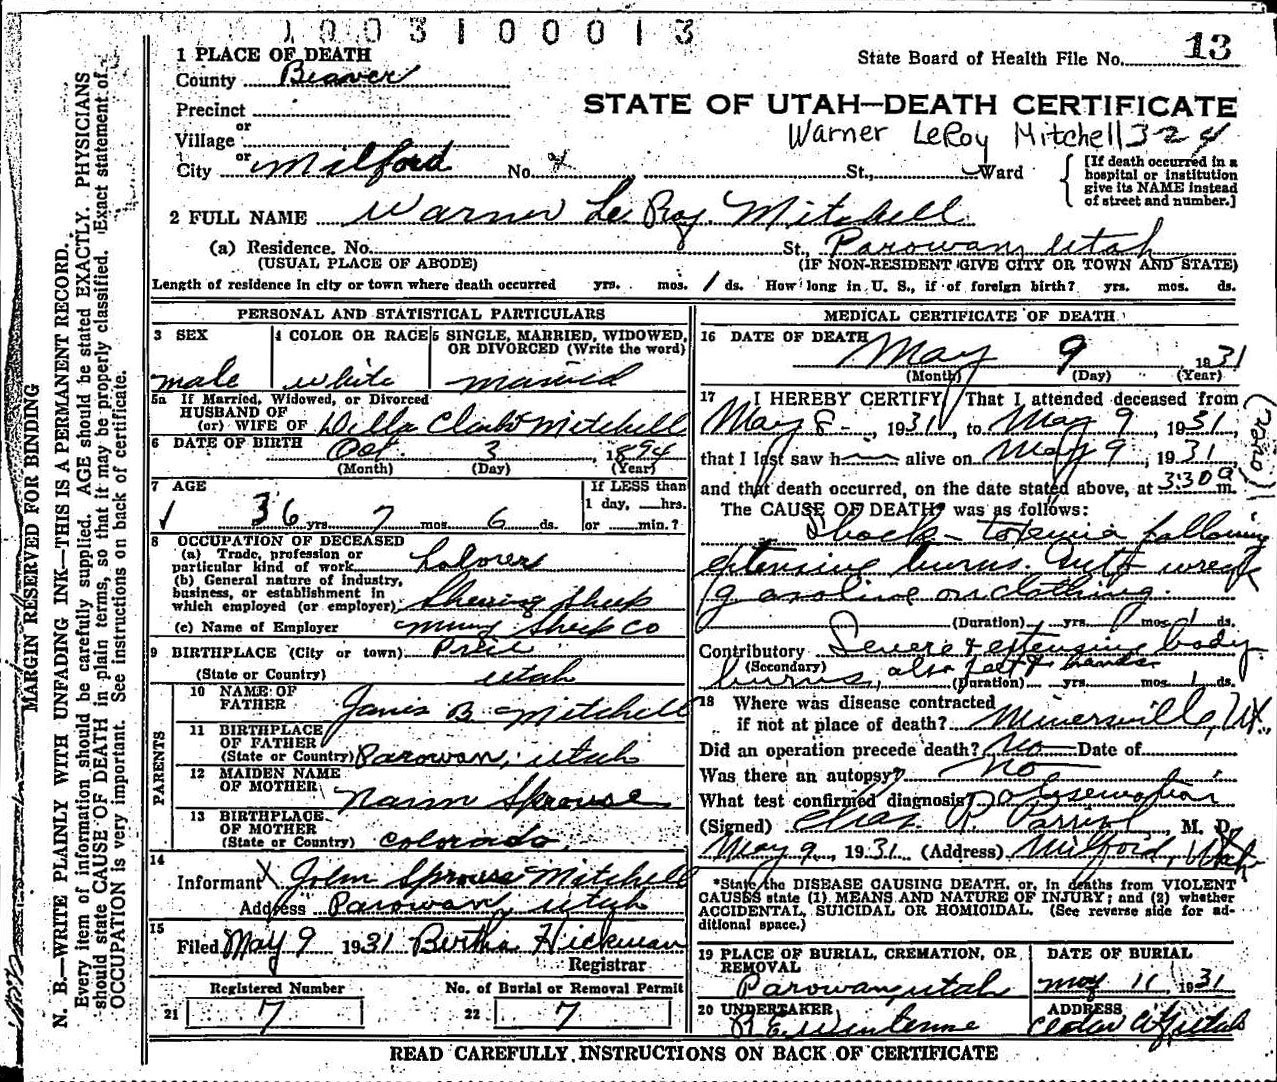 1003100013
1 PLACE OF DEATH
State Board of Health File No. 13
County Beaver
STATE OF UTAH—DEATH CERTIFICATE
Precinct
or
Village
Warner LeRoy Mitchell 324
City or Milford No. St., Ward
[If death occurred in a
hospital or institution
give its NAME instead
of street and number.]
2 FULL NAME Warner Le Roy Mitchell
(a) Residence. No. St., Parowan, Utah
(USUAL PLACE OF ABODE) (IF NON-RESIDENT GIVE CITY OR TOWN AND STATE)
Length of residence in city or town where death occurred yrs. mos. 1 ds. How long in U. S., if of foreign birth? yrs. mos. ds.
PERSONAL AND STATISTICAL PARTICULARS
3 SEX 4 COLOR OR RACE 5 SINGLE, MARRIED, WIDOWED,
OR DIVORCED (Write the word)
male white married
5a If Married, Widowed, or Divorced
HUSBAND OF
(or) WIFE OF Della Clark Mitchell
6 DATE OF BIRTH Oct. 3, 1894
(Month) (Day) (Year)
7 AGE If LESS than
1 day, hrs.
36 yrs. 7 mos. 6 ds. or min.?
8 OCCUPATION OF DECEASED
(a) Trade, profession or
particular kind of work Laborer
(b) General nature of industry,
business, or establishment in
which employed (or employer) Shearing Sheep
(c) Name of Employer Sheep Co
9 BIRTHPLACE (City or town) Price
(State or Country) Utah
PARENTS
10 NAME OF
FATHER B. Mitchell
11 BIRTHPLACE
OF FATHER
(State or Country) Parowan, Utah
12 MAIDEN NAME
OF MOTHER Sprouse
13 BIRTHPLACE
OF MOTHER
(State or Country) Colorado.
14
Informant John Sprouse Mitchell
Address Parowan, Utah
15
Filed May 9 1931 Bertha Hickman
Registrar
Registered Number No. of Burial or Removal Permit
21 7 22 7
MEDICAL CERTIFICATE OF DEATH
16 DATE OF DEATH
May 9 1931
(Month) (Day) (Year)
17 I HEREBY CERTIFY, That I attended deceased from
May 8-, 1931, to May 9, 1931,
that I last saw him alive on May 9, 1931,
(over)
and that death occurred, on the date stated above, at 3:30 a m.
The CAUSE OF DEATH* was as follows:
Shock - toxemia following
extensive burns. Auto wreck
gasoline on clothing.
(Duration) yrs. mos. 1 ds.
Contributory Severe & extensive body
(Secondary) burns, also feet & hands
(Duration) yrs. mos. 1 ds.
18 Where was disease contracted
if not at place of death? Minersville, Ut.
Did an operation precede death? No Date of
Was there an autopsy? No
What test confirmed diagnosis? Observation
(Signed) Chas. P. Parrish M. D.
May 9, 1931 (Address) Milford, Utah
*State the DISEASE CAUSING DEATH, or, in deaths from VIOLENT
CAUSES state (1) MEANS AND NATURE OF INJURY; and (2) whether
ACCIDENTAL, SUICIDAL OR HOMICIDAL. (See reverse side for ad-
ditional space.)
19 PLACE OF BURIAL, CREMATION, OR
REMOVAL
Parowan, Utah
DATE OF BURIAL
May 11, 1931
20 UNDERTAKER
ADDRESS
Cedar City, Utah
READ CAREFULLY INSTRUCTIONS ON BACK OF CERTIFICATE
MARGIN RESERVED FOR BINDING
N. B.—WRITE PLAINLY WITH UNFADING INK—THIS IS A PERMANENT RECORD.
Every item of information should be carefully supplied. AGE should be stated EXACTLY. PHYSICIANS
should state CAUSE OF DEATH in plain terms, so that it may be properly classified. Exact statement of
OCCUPATION is very important. See instructions on back of certificate.